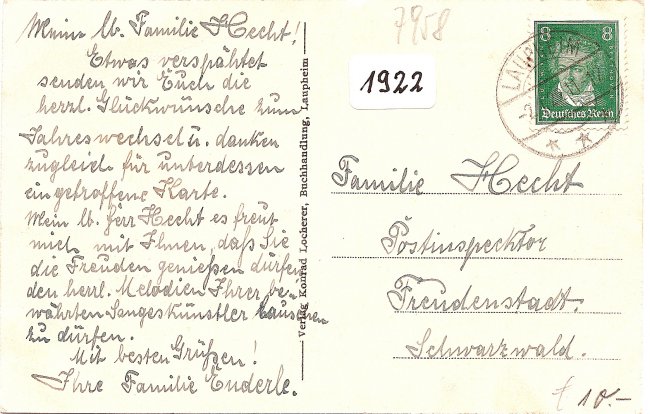 Mein lb. Familie Hecht!
Etwas verspähtet
senden wir Euch die
herrl. Glückwünsche zum
Jahreswechsel u. danken
zugleich für unterdessen
eingetroffene Karte.
Mein lb. Herr Hecht es freut
mich mit Ihnen, daß Sie
die Freuden genießen dürfen
den herrl. Melodien Ihrer be-
währten Sangeskünstler lauschen
zu dürfen.
Mit besten Grüßen!
Ihre Familie Enderle.
Verlag Konrad Locherer, Buchhandlung, Laupheim
7958
1922
8 8
Deutsches Reich
LAUPHEIM
Familie Hecht
Postinspecktor
Freudenstadt.
Schwarzwald.
10.-